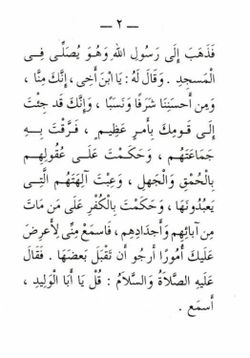 — ٢ —
فَذَهَبَ إِلَى رَسُولِ اللهِ وَهُوَ يُصَلِّي فِي
المَسجِدِ . وَقَالَ لَهُ : يَا ابْنَ أَخِي ، إِنَّكَ مِنَّا ،
وَمِن أَحسَنِنَا شَرَفًا وَنَسَبًا ، وَإِنَّكَ قَد جِئتَ
إِلَى قَومِكَ بِأَمرٍ عَظِيمٍ ، فَرَّقتَ بِهِ
جَمَاعَتَهُم ، وَحَكَمْتَ عَلَى عُقُولِهِم
بِالحُمْقِ وَالجَهلِ ، وَعِبْتَ آلِهَتَهُم الَّتِي
يَعبُدُونَهَا ، وَحَكَمْتَ بِالكُفْرِ عَلَى مَن مَاتَ
مِن آبَائِهِم وَأَجدَادِهِم ، فَاسمَعْ مِنِّي لِأَعرِضَ
عَلَيكَ أُمُورًا أَرجُو أَن تَقْبَلَ بَعضَهَا . فَقَالَ
عَلَيهِ الصَّلَاةُ وَالسَّلَامُ : قُلْ يَا أَبَا الوَلِيدِ ،
أَسمَع .